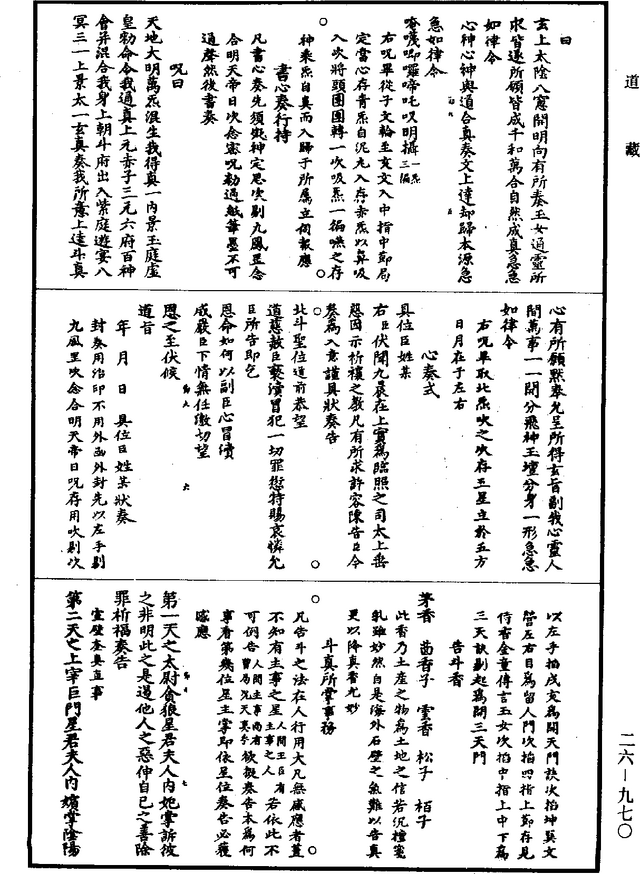 道藏
曰
玄上太陰八窻開明向有所奏玉女通靈所
求皆遂所願皆成千和萬合自然成真急急
如律令
心神心神與道合真奏文上達却歸本源急
急如律令
右咒畢從子文輪至亥文入中指中節局
定當心存青炁自泥丸入存赤炁以鼻吸
入次將頭團團轉一吹吸炁一徧嚥之存
神乘炁自真而入歸于所屬立伺報應
書心奏行持
凡書心奏先須凝神定思次剔九鳳罡念
合明天帝日次念密咒勑過紙筆墨不可
通聲然後書奏
咒曰
天地大明萬炁混生我得真一内景玉庭虛
皇勑命令我通真上元赤子三元六府百神
會并混合我身上朝斗府出入紫庭遊宴八
冥三一上景太一玄真奏我所意上達斗真
心有所願默奏允呈所得玄旨剔我心靈人
間萬事一一開分飛神玉壇分身一形急急
如律令
右咒畢取北炁吹之次存五星立於五方
日月在于左右
心奏式
具位臣姓某
右臣伏聞九晨在上實爲臨照之司太上垂
慈因示祈禳之教凡有所求許容陳告臣今
奏爲入意謹具狀奏告
北斗聖位道前恭望
道慈赦臣褻瀆冒犯一切罪愆特賜哀憐允
臣所告即乞
恩命如何以副臣心冒瀆
威嚴臣下情無任激切望
恩之至伏候
道旨
年月日具位臣姓某狀奏
封奏用治印不用外函外封先以左手剔
九鳳罡次念合明天帝日咒存用次剔次
以左手掐戌亥爲開天門訣次掐坤巽文
營左右目爲留人門次掐四指上節存見
侍香金童傳言玉女次掐中指上中下爲
三天訣剔起爲開三天門
告斗香
茅香 茴香子 雲香 松子 栢子
此香乃土産之物爲土地之信若沉檀寳
乳雖妙然自是海外石壁之魚難以告真
更以降真香尤妙
斗真所掌事務
凡告斗之法在人行用大凡無感應者蓋
不知有主事之星若依此不
可例告欲擬奏告本爲何
事看第幾位星主掌即依星位奏告必獲
感應
第一天之太尉貪狼星君夫人内妃掌訴彼
之非明此之是過他人之惡伸自己之善除
罪祈福奏告
室壁奎婁直事
第二天之上宰巨門星君夫人内嬪掌陰陽
二六-九七〇